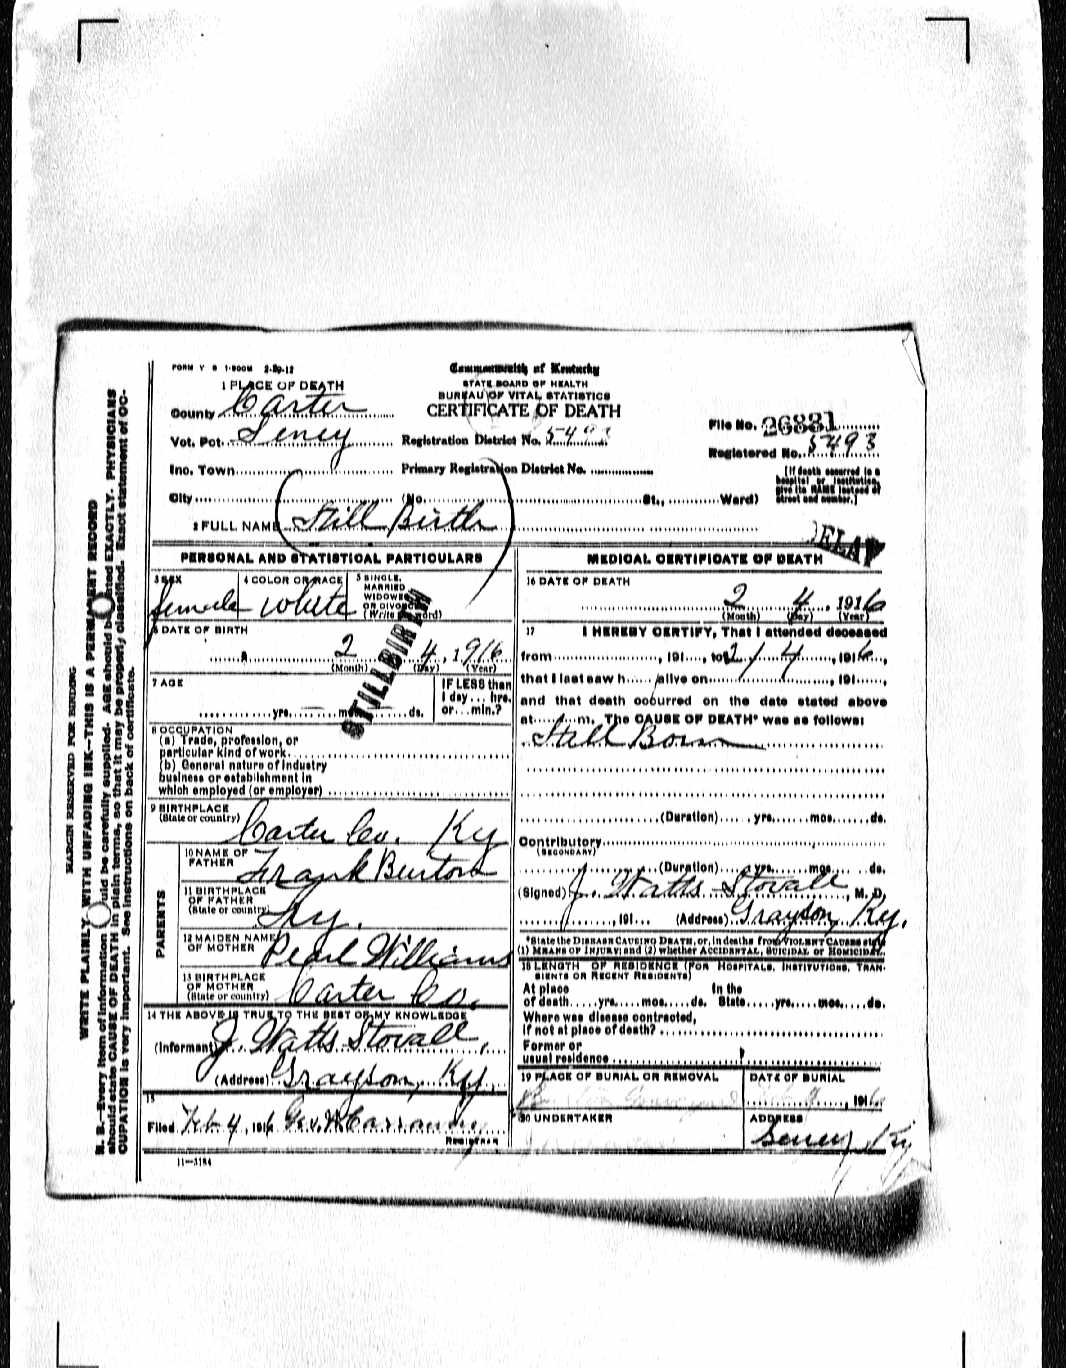 FORM V S 1-500M 2-29-12
Commonwealth of Kentucky
STATE BOARD OF HEALTH
BUREAU OF VITAL STATISTICS
CERTIFICATE OF DEATH
1 PLACE OF DEATH
County Carter
Vot. Pct.
Registration District No. 549
Inc. Town
Primary Registration District No.
City (No. St., Ward)
File No. 26881
Registered No. 5493
[If death occurred in a
hospital or institution,
give its NAME instead of
street and number.]
2 FULL NAME Still Birth
DELAY
PERSONAL AND STATISTICAL PARTICULARS
3 SEX
Female
4 COLOR OR RACE
White
5 SINGLE,
MARRIED
WIDOWED
OR DIVORCED
(Write word)
STILLBIRTH
6 DATE OF BIRTH
2 4, 1916
(Month) (Day) (Year)
7 AGE
yrs. mos. ds.
IF LESS than
1 day ... hrs.
or ... min.?
8 OCCUPATION
(a) Trade, profession, or
particular kind of work
(b) General nature of industry
business or establishment in
which employed (or employer)
9 BIRTHPLACE
(State or country)
Carter Co. Ky
PARENTS
10 NAME OF
FATHER
Frank Burton
11 BIRTHPLACE
OF FATHER
(State or country)
Ky.
12 MAIDEN NAME
OF MOTHER
Pearl Williams
13 BIRTHPLACE
OF MOTHER
(State or country)
Carter Co.
14 THE ABOVE IS TRUE TO THE BEST OF MY KNOWLEDGE
(Informant) J. Watts Stovall,
(Address) Grayson, Ky.
15
Filed Feb 4, 1916 Geo. W.
REGISTRAR
11-3184
MEDICAL CERTIFICATE OF DEATH
16 DATE OF DEATH
2 4, 1916
(Month) (Day) (Year)
17 I HEREBY CERTIFY, That I attended deceased
from , 191 , to 2/4, 1916,
that I last saw h alive on , 191 ,
and that death occurred on the date stated above
at m. The CAUSE OF DEATH* was as follows:
Still Born
(Duration) yrs. mos. ds.
Contributory
(SECONDARY)
(Duration) yrs. mos. ds.
(Signed) J. Watts Stovall, M. D.
, 191 (Address) Grayson, Ky.
*State the DISEASE CAUSING DEATH, or, in deaths from VIOLENT CAUSES state
(1) MEANS OF INJURY; and (2) whether ACCIDENTAL, SUICIDAL or HOMICIDAL.
18 LENGTH OF RESIDENCE (FOR HOSPITALS, INSTITUTIONS, TRANSIENTS OR RECENT RESIDENTS)
At place In the
of death yrs. mos. ds. State yrs. mos. ds.
Where was disease contracted,
if not at place of death?
Former or
usual residence
19 PLACE OF BURIAL OR REMOVAL
DATE OF BURIAL
, 1916
20 UNDERTAKER
ADDRESS
Ky
MARGIN RESERVED FOR BINDING
WRITE PLAINLY, WITH UNFADING INK—THIS IS A PERMANENT RECORD
N. B.—Every item of information should be carefully supplied. AGE should be stated EXACTLY. PHYSICIANS
should state CAUSE OF DEATH in plain terms, so that it may be properly classified. Exact statement of OC-
CUPATION is very important. See instructions on back of certificate.